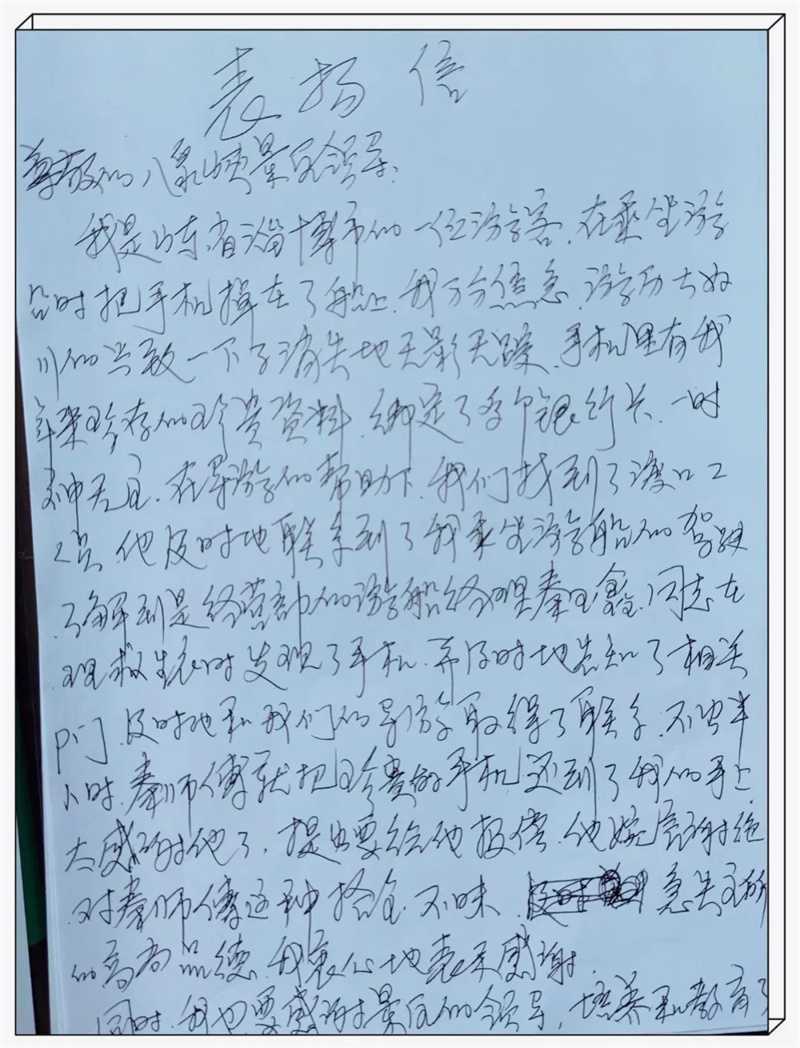 表扬信
尊敬的八泉峡景区领导:
我是山东省淄博市的一位游客,在乘坐游
船时把手机掉在了船上,我万分焦急,游历大好山
川的兴致一下子消失地无影无踪,手机里有我
年累珍存的珍贵资料,绑定了多个银行卡,一时
神无主,在导游的帮助下,我们找到了渡口工
人员,他及时地联系到了我乘坐游船的驾驶
了解到是经营部的游船经理秦玉鑫同志在
理救生衣时发现了手机,并及时地告知了相关
部门,及时地和我们的导游取得了联系,不出半
小时,秦师傅就把珍贵的手机还到了我的手上
太感谢他了,提出要给他报偿,他婉言谢绝
对秦师傅这种拾金不昧,急失主所
的高尚品德,我衷心地表示感谢.
同时,我也要感谢景区的领导,培养和教育了